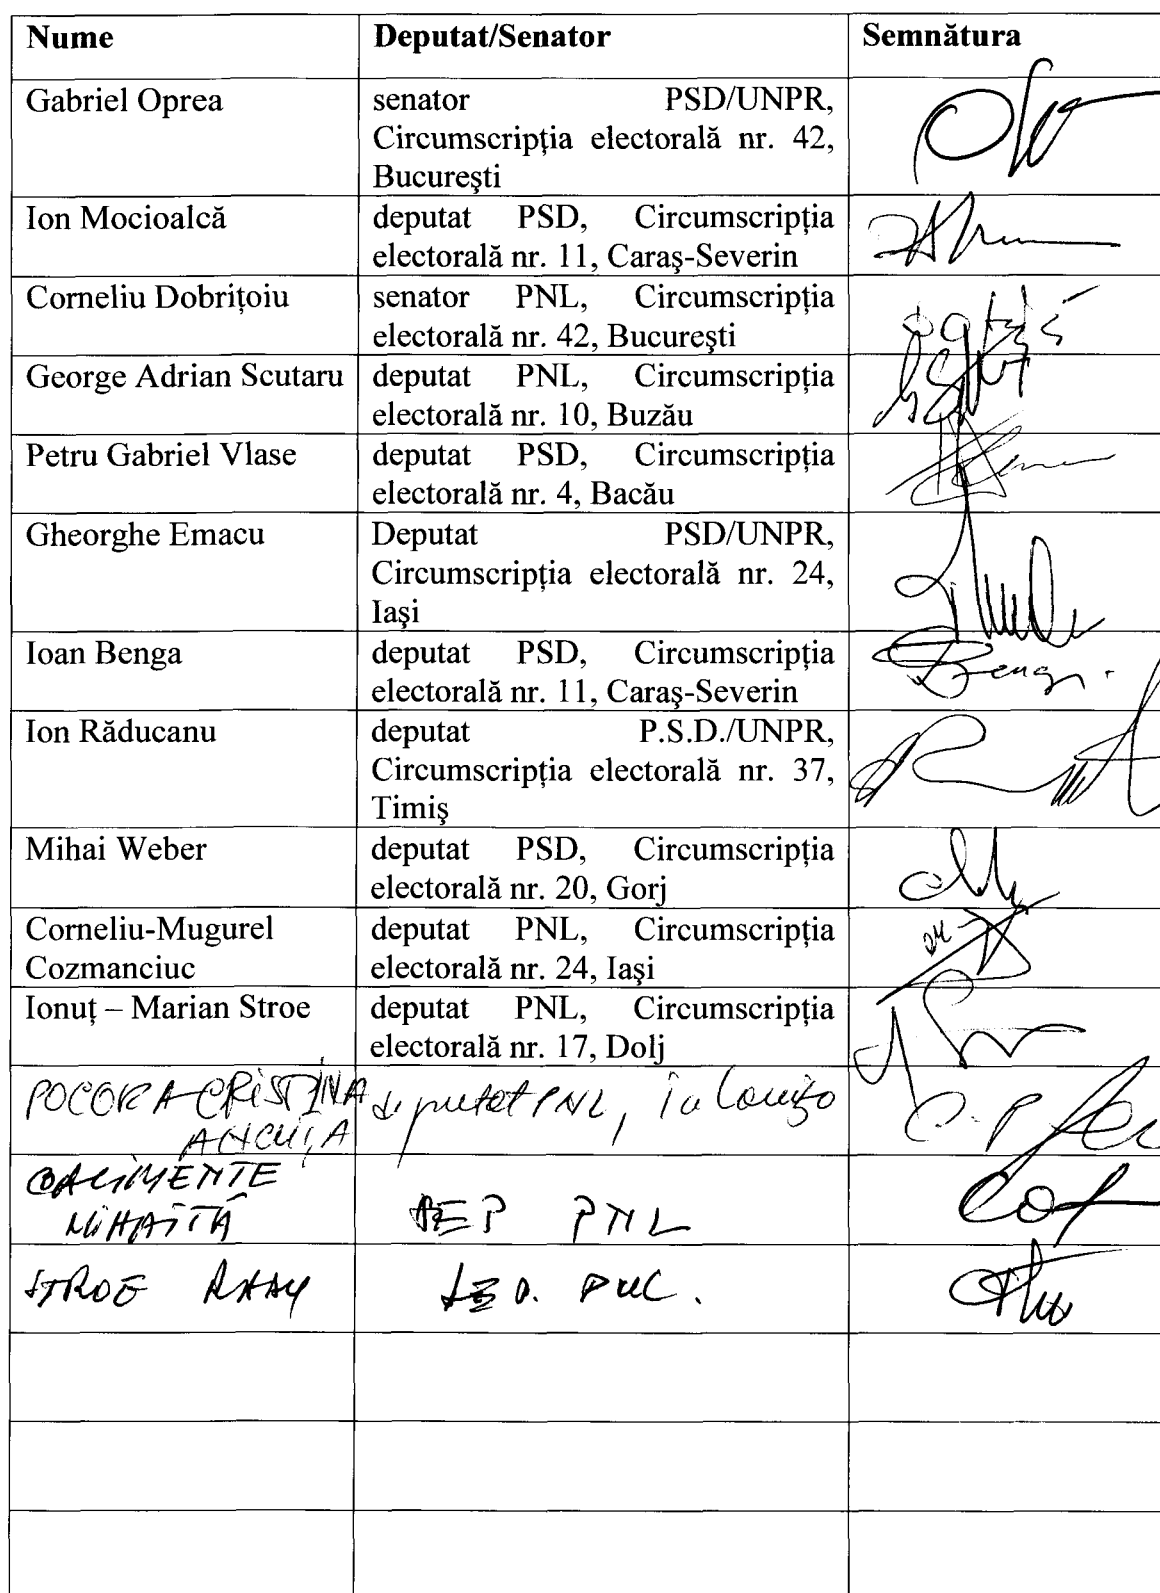 Nume Deputat/Senator Semnătura
Gabriel Oprea senator PSD/UNPR,
Circumscripția electorală nr. 42,
Bucureşti
Ion Mocioalcă deputat PSD, Circumscripția
electorală nr. 11, Caraş-Severin
Corneliu Dobrițoiu senator PNL, Circumscripția
electorală nr. 42, Bucureşti
George Adrian Scutaru deputat PNL, Circumscripția
electorală nr. 10, Buzău
Petru Gabriel Vlase deputat PSD, Circumscripția
electorală nr. 4, Bacău
Gheorghe Emacu Deputat PSD/UNPR,
Circumscripția electorală nr. 24,
Iaşi
Ioan Benga deputat PSD, Circumscripția
electorală nr. 11, Caraş-Severin
Benga
Ion Răducanu deputat P.S.D./UNPR,
Circumscripția electorală nr. 37,
Timiş
Mihai Weber deputat PSD, Circumscripția
electorală nr. 20, Gorj
Corneliu-Mugurel deputat PNL, Circumscripția
Cozmanciuc electorală nr. 24, Iaşi
Ionuț – Marian Stroe deputat PNL, Circumscripția
electorală nr. 17, Dolj
POCORA CRISTINA deputat PNL,
ANCUȚA
MIHAITĂ DEP PNL
STROE